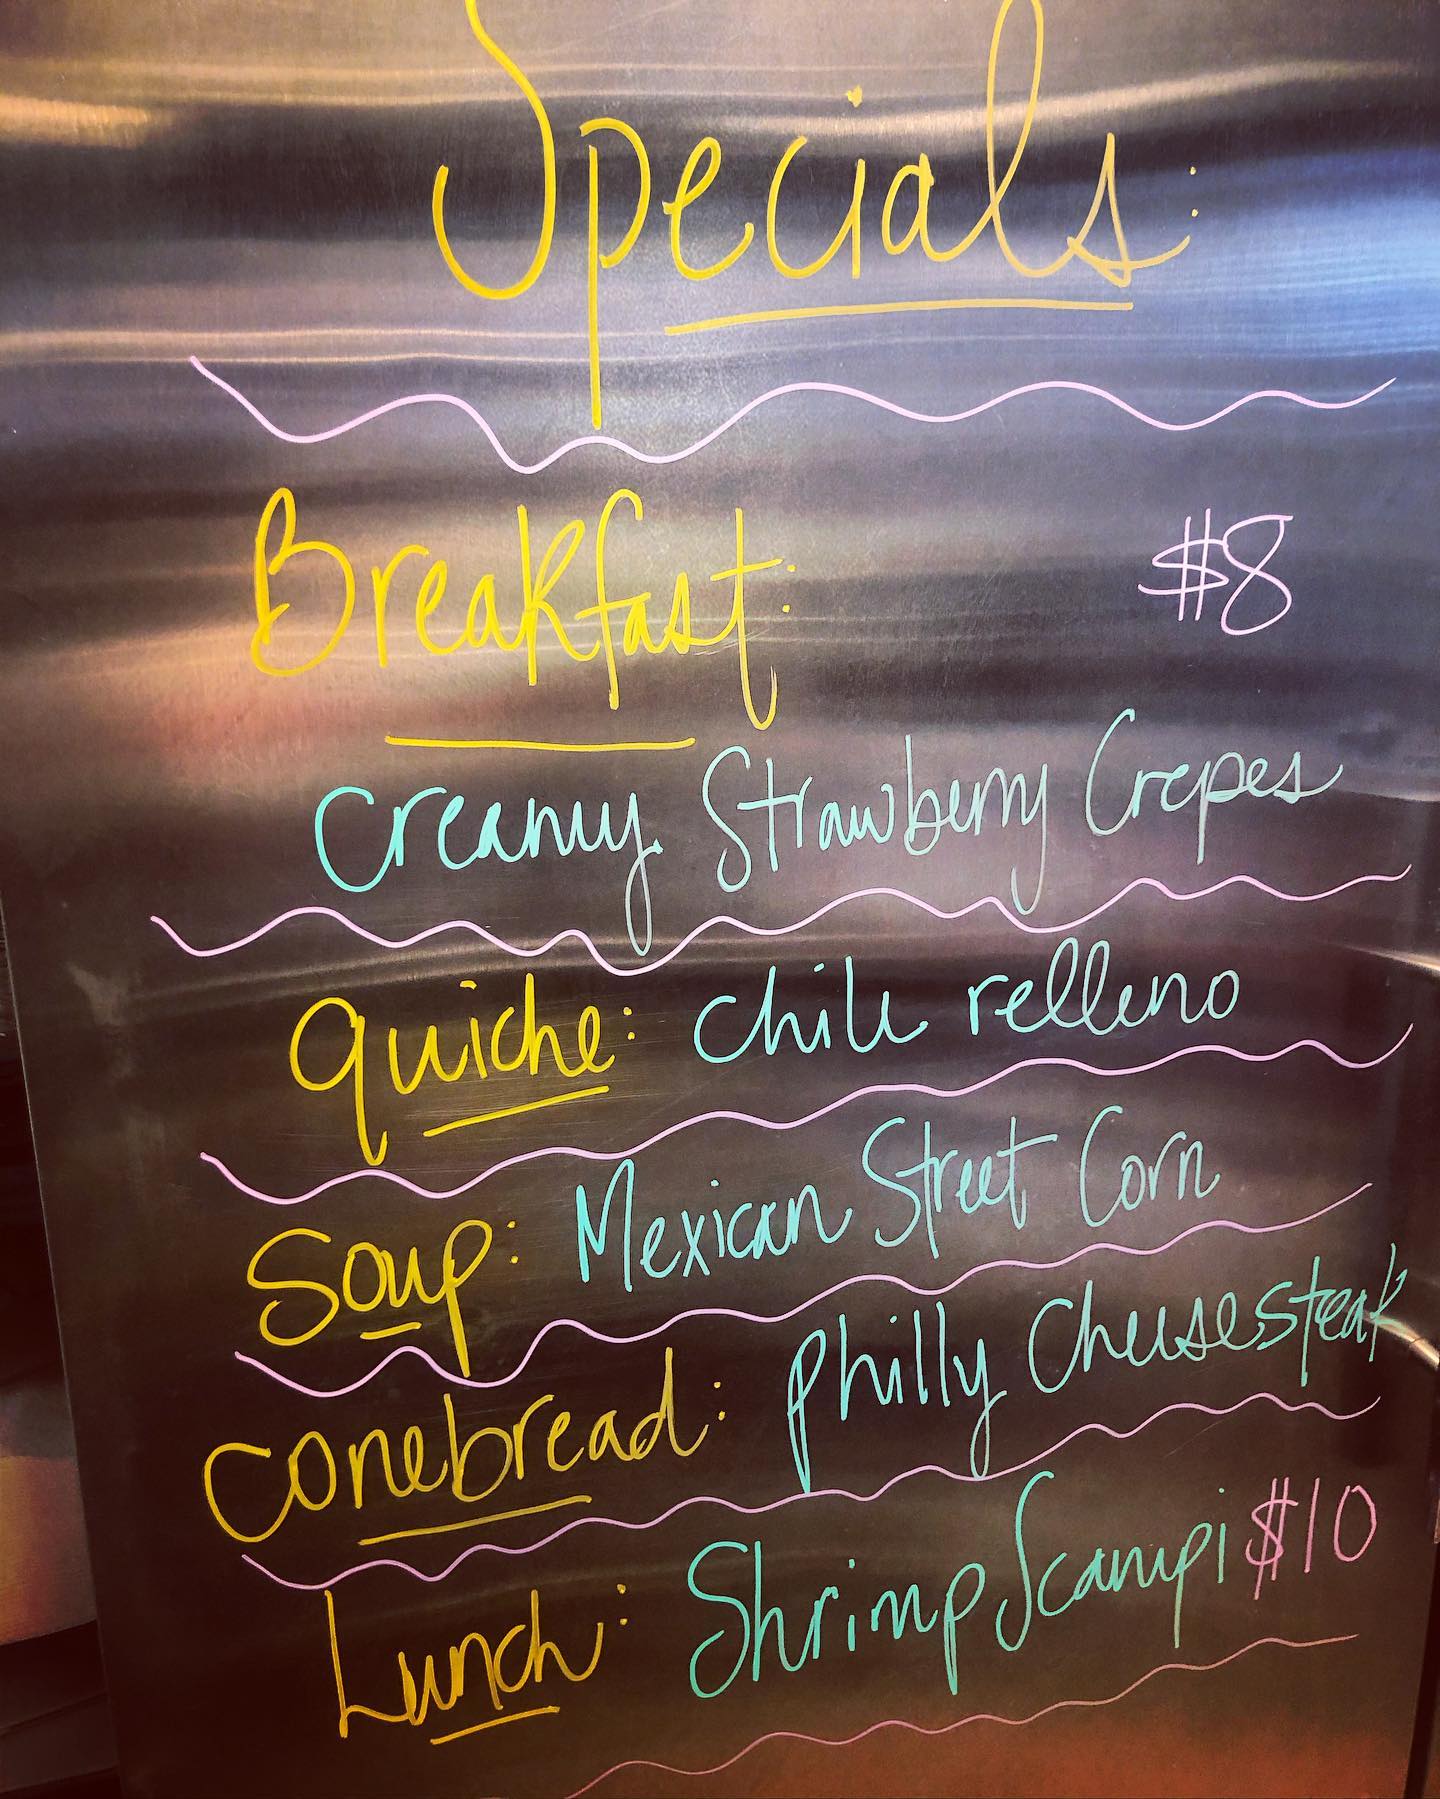 Specials:
Breakfast: $8
Creamy Strawberry Crepes
quiche: chili relleno
Soup: Mexican Street Corn
conebread: philly cheesesteak
Lunch: Shrimp Scampi $10